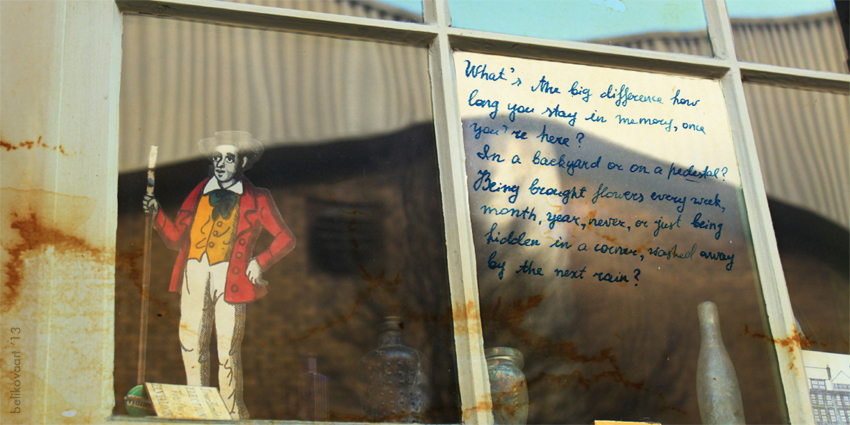 What's the big difference how
long you stay in memory, once
you're here?
In a backyard or on a pedestal?
Being brought flowers every week,
month, year, never, or just being
hidden in a corner, washed away
by the next rain?
betikovaart '13